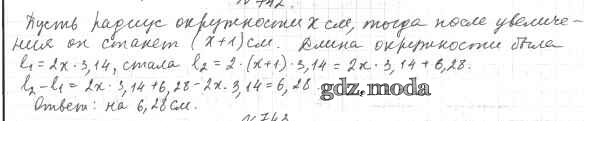 № 742.
Пусть радиус окружности x см, тогда после увеличе-
ния он станет (x+1) см. Длина окружности была
l₁ = 2x · 3,14, стала l₂ = 2 · (x+1) · 3,14 = 2x · 3,14 + 6,28.
l₂ - l₁ = 2x · 3,14 + 6,28 - 2x · 3,14 = 6,28.
gdz.moda
Ответ: на 6,28 см.
№ 743